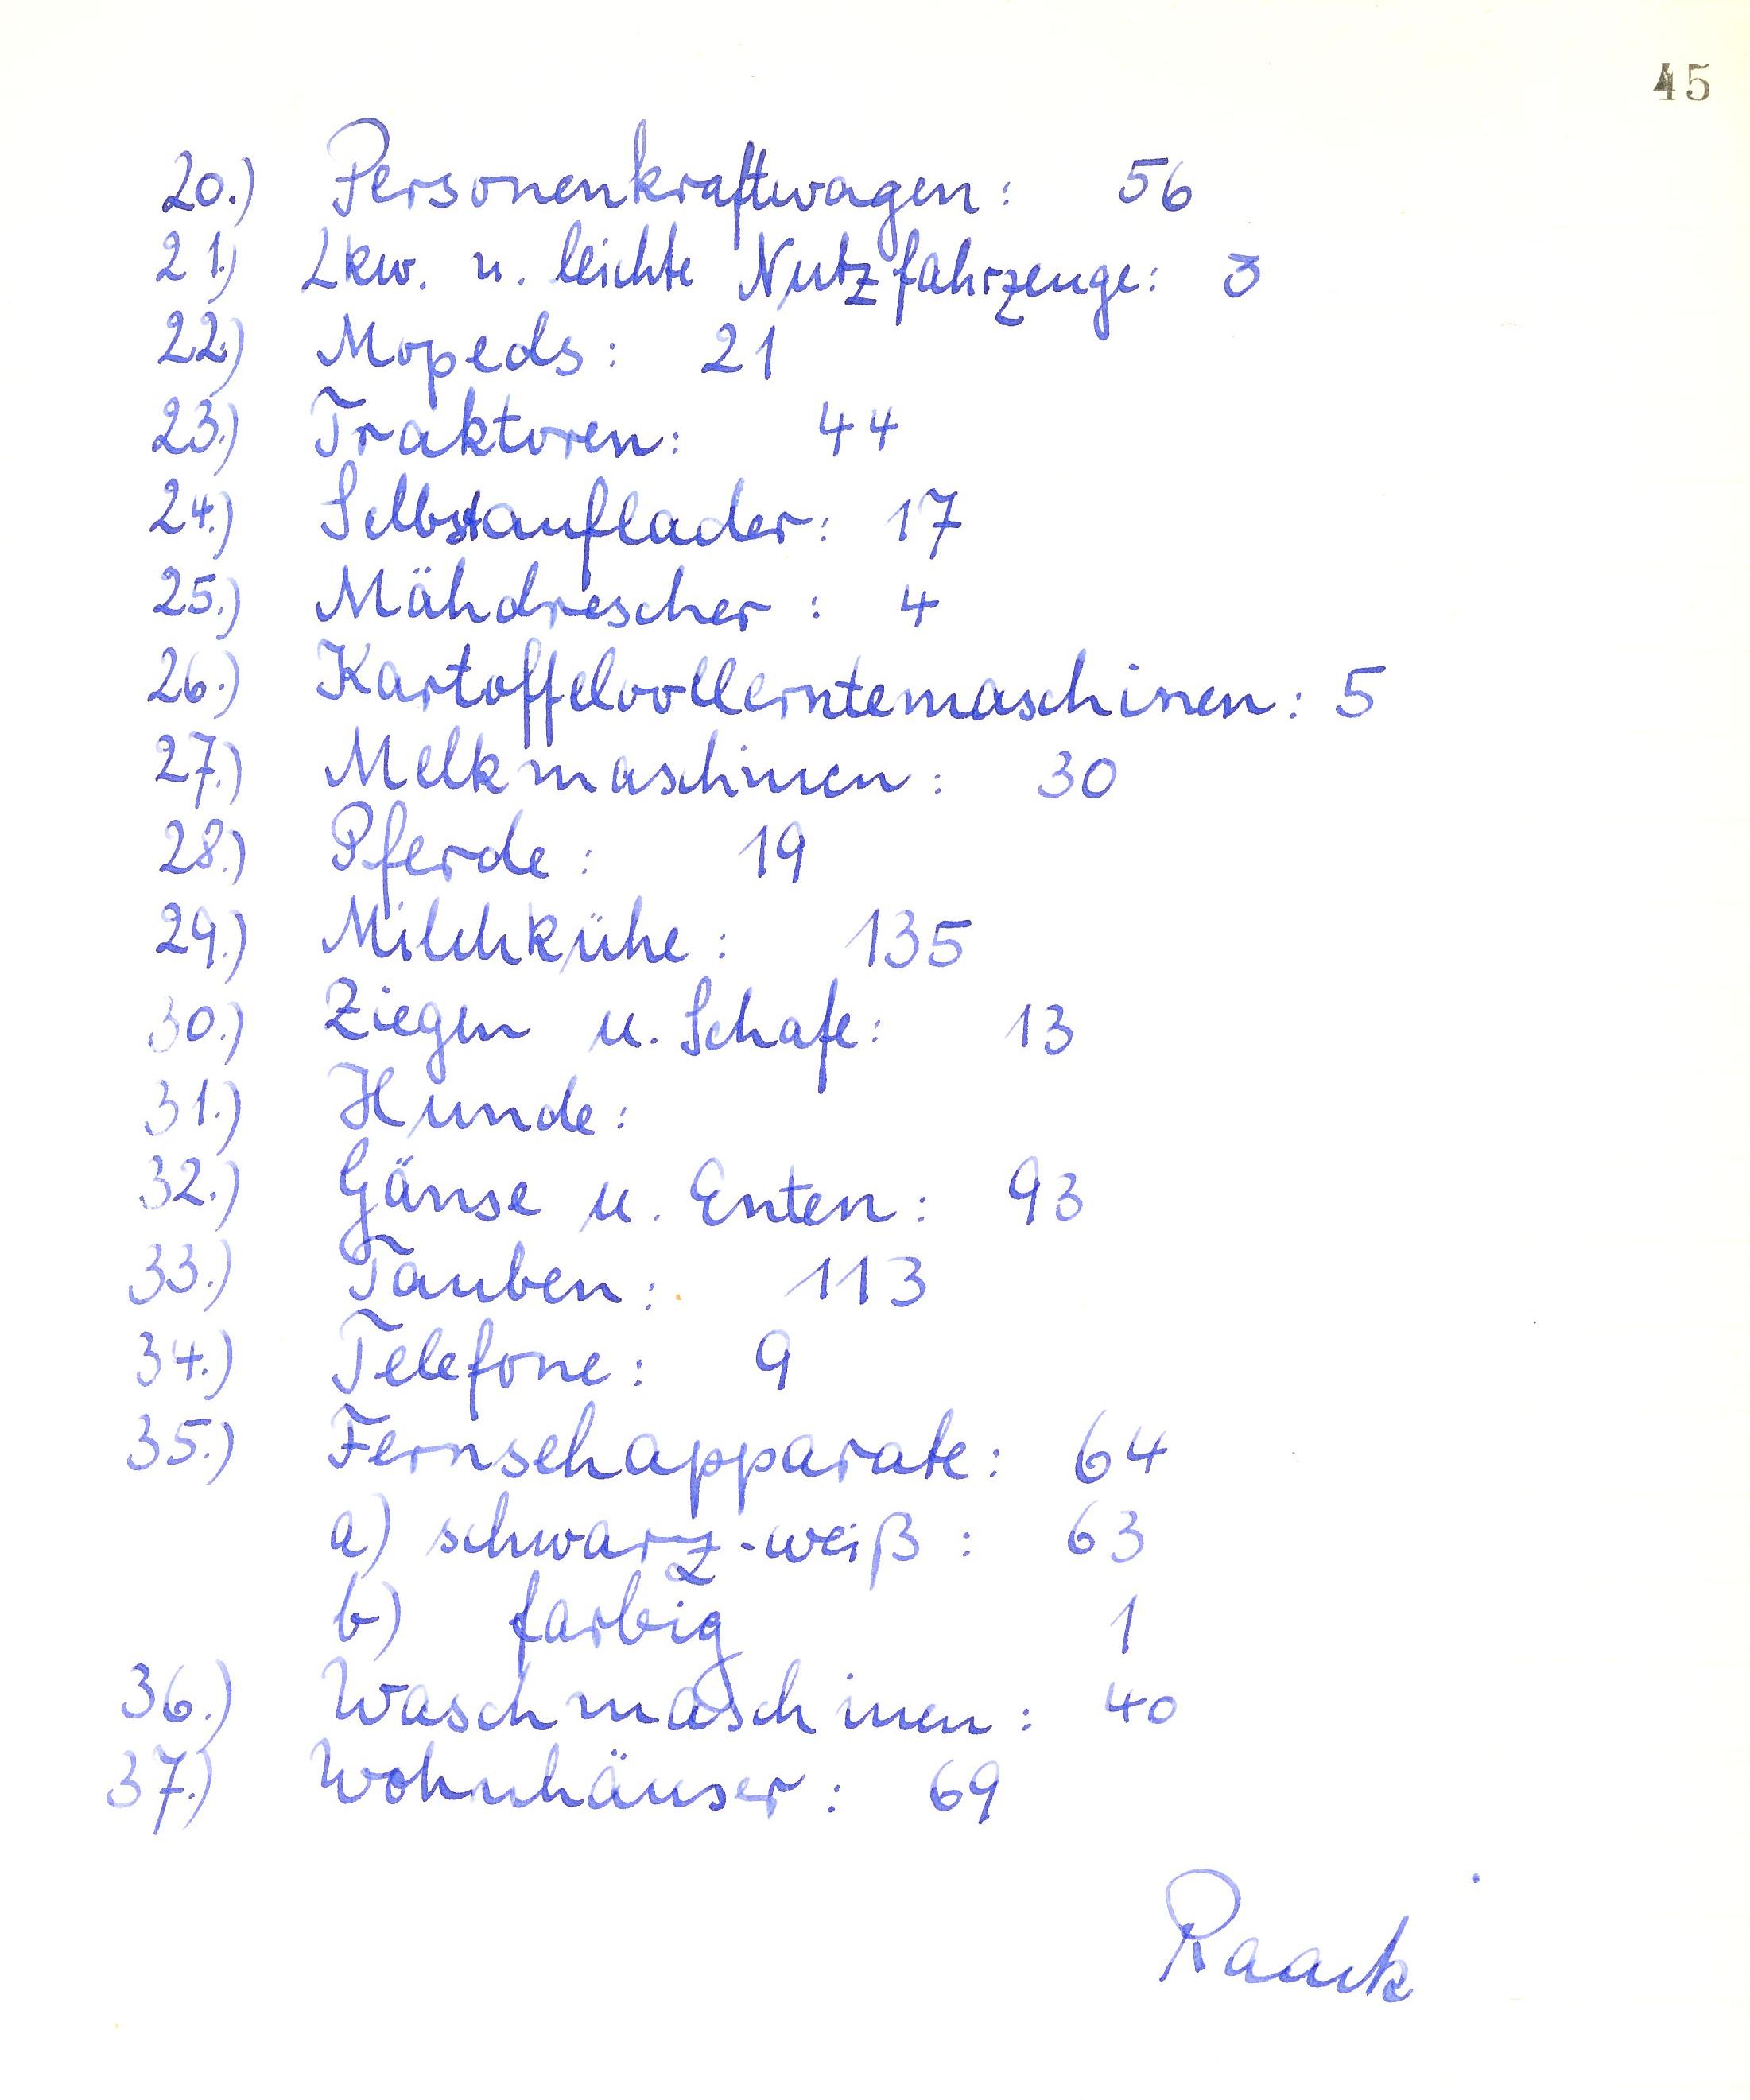 45
20.) Personenkraftwagen: 56
21.) Lkw. u. leichte Nutzfahrzeuge: 3
22.) Mopeds: 21
23.) Traktoren: 44
24.) Selbstauflader: 17
25.) Mähdrescher: 4
26.) Kartoffelvollerntemaschinen: 5
27.) Melkmaschinen: 30
28.) Pferde: 19
29.) Milchkühe: 135
30.) Ziegen u. Schafe: 13
31.) Hunde:
32.) Gänse u. Enten: 93
33.) Tauben: 113
34.) Telefone: 9
35.) Fernsehapparate: 64
a) schwarz-weiß: 63
b) farbig 1
36.) Waschmaschinen: 40
37.) Wohnhäuser: 69
Raack